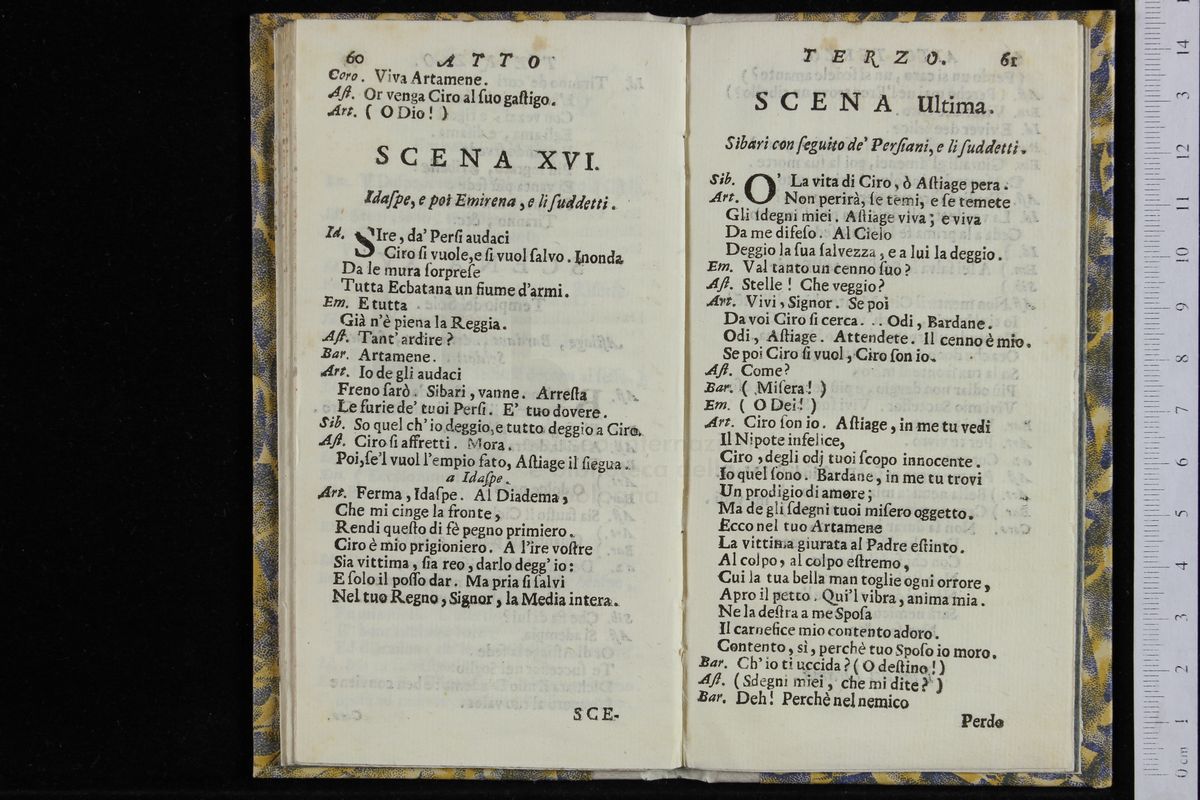 60 ATTO
Coro. Viva Artamene.
Aſt. Or venga Ciro al ſuo gaſtigo.
Art. ( O Dio! )
SCENA XVI.
Idaſpe, e poi Emirena, e li ſuddetti.
Id. SIre, da' Perſi audaci
Ciro ſi vuole, e ſi vuol ſalvo. Inonda
Da le mura ſorpreſe
Tutta Ecbatana un fiume d'armi.
Em. E tutta
Già n'è piena la Reggia.
Aſt. Tant' ardire?
Bar. Artamene.
Art. Io de gli audaci
Freno ſarò. Sibari, vanne. Arreſta
Le furie de' tuoi Perſi. E' tuo dovere.
Sib. So quel ch' io deggio, e tutto deggio a Ciro.
Aſt. Ciro ſi affretti. Mora.
Poi, ſe'l vuol l'empio fato, Aſtiage il ſiegua.
a Idaſpe.
Art. Ferma, Idaſpe. Al Diadema,
Che mi cinge la fronte,
Rendi queſto di fè pegno primiero.
Ciro è mio prigioniero. A l'ire voſtre
Sia vittima, ſia reo, darlo degg' io:
E ſolo il poſſo dar. Ma pria ſi ſalvi
Nel tuo Regno, Signor, la Media intera.
SCE-
TERZO. 61
SCENA Ultima.
Sibari con ſeguito de' Perſiani, e li ſuddetti.
Sib. O' La vita di Ciro, ò Aſtiage pera.
Art. Non perirà, ſe temi, e ſe temete
Gli ſdegni miei. Aſtiage viva; e viva
Da me difeſo. Al Cielo
Deggio la ſua ſalvezza, e a lui la deggio.
Em. Val tanto un cenno ſuo?
Aſt. Stelle! Che veggio?
Art. Vivi, Signor. Se poi
Da voi Ciro ſi cerca... Odi, Bardane.
Odi, Aſtiage. Attendete. Il cenno è mio.
Se poi Ciro ſi vuol, Ciro ſon io.
Aſt. Come?
Bar. ( Miſera! )
Em. ( O Dei! )
Art. Ciro ſon io. Aſtiage, in me tu vedi
Il Nipote infelice,
Ciro, degli odj tuoi ſcopo innocente.
Io quel ſono. Bardane, in me tu trovi
Un prodigio di amore;
Ma de gli ſdegni tuoi miſero oggetto.
Ecco nel tuo Artamene
La vittima giurata al Padre eſtinto.
Al colpo, al colpo eſtremo,
Cui la tua bella man toglie ogni orrore,
Apro il petto. Qui'l vibra, anima mia.
Ne la deſtra a me Spoſa
Il carnefice mio contento adoro.
Contento, sì, perchè tuo Spoſo io moro.
Bar. Ch' io ti uccida? ( O deſtino! )
Aſt. (Sdegni miei, che mi dite? )
Bar. Deh! Perchè nel nemico
Perdo